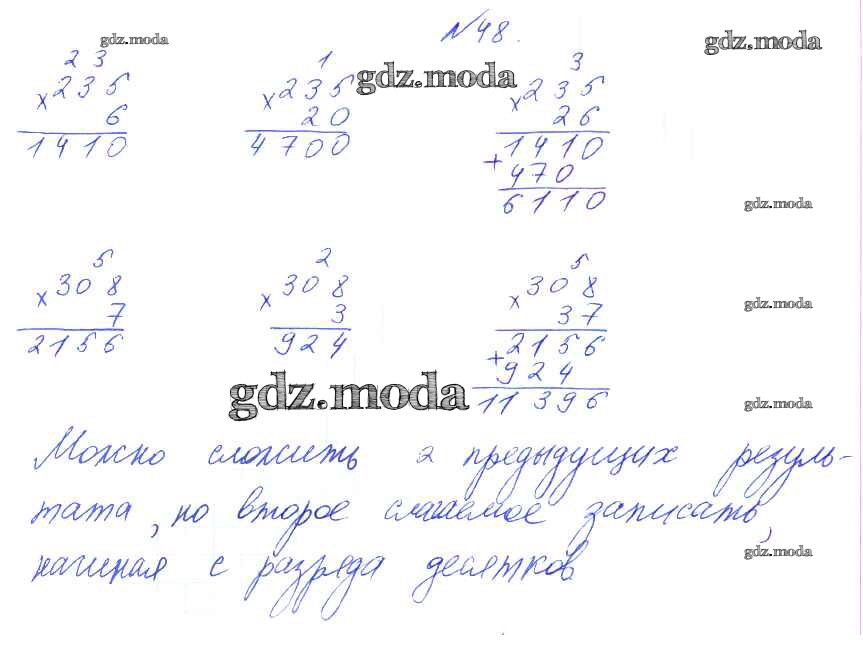 №48.
gdz.moda
gdz.moda
gdz.moda
2 3
× 235
6
1410
1
× 235
20
4700
3
× 235
26
1410
+ 470
6110
gdz.moda
5
× 308
7
2156
2
× 308
3
924
5
× 308
37
2156
+ 924
11396
gdz.moda
gdz.moda
gdz.moda
Можно сложить 2 предыдущих резуль-
тата, но второе слагаемое записать,
начиная с разряда десятков
gdz.moda